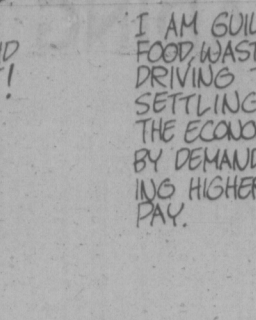 I AM GUIL
FOOD, WAST
DRIVING
SETTLING
THE ECONO
BY DEMAND
ING HIGHER
PAY.